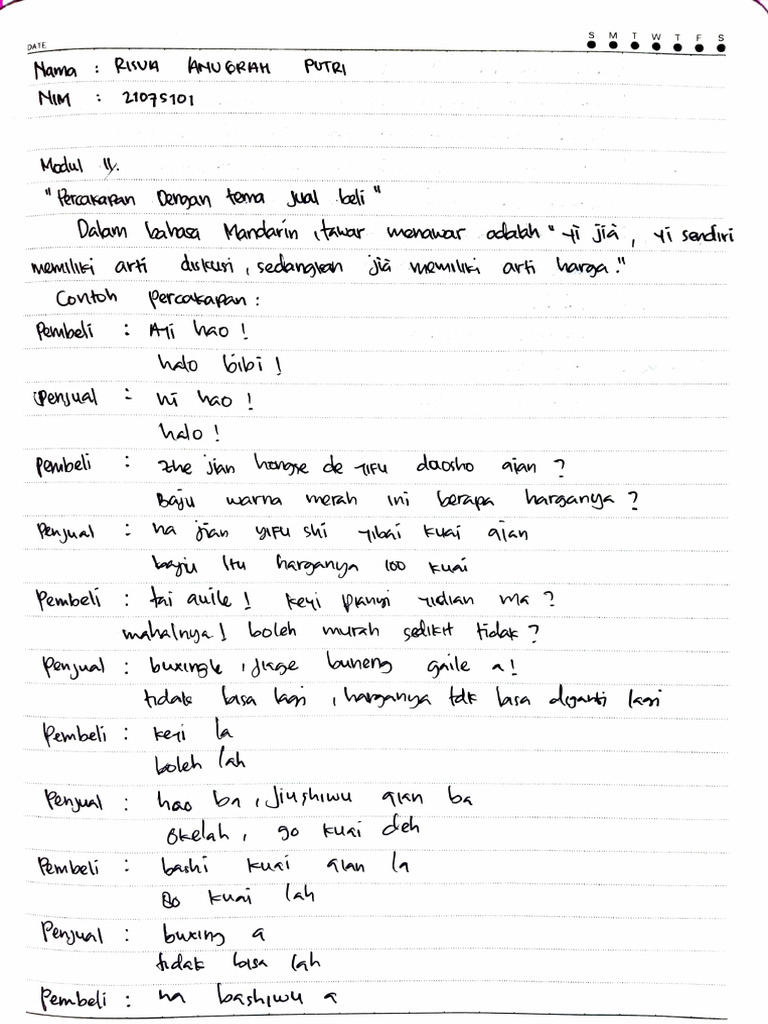 DATE
S M T W T F S
Nama : RISVIA ANUGRAH PUTRI
NIM : 21075101
Modul 11.
"Percakapan Dengan tema jual beli"
Dalam bahasa Mandarin, tawar menawar adalah "yi jià, yi sendiri
memiliki arti diskusi, sedangkan jià memiliki arti harga."
Contoh percakapan :
Pembeli : Ayi hao !
halo bibi !
Penjual : ni hao !
halo !
Pembeli : zhe jian hongse de yifu daosho qian ?
Baju warna merah ini berapa harganya ?
Penjual : na jian yifu shi yibai kuai qian
baju itu harganya 100 kuai
Pembeli : tai quile ! keyi pianyi yidian ma ?
mahalnya ! boleh murah sedikit tidak ?
Penjual : buxingle, jiage buneng gaile a !
tidak bisa lagi, harganya tdk bisa diganti lagi
Pembeli : keyi la
boleh lah
Penjual : hao ba, jiushiwu qian ba
Okelah, 90 kuai deh
Pembeli : bashi kuai qian la
80 kuai lah
Penjual : buxing a
tidak bisa lah
Pembeli : na bashiwu a